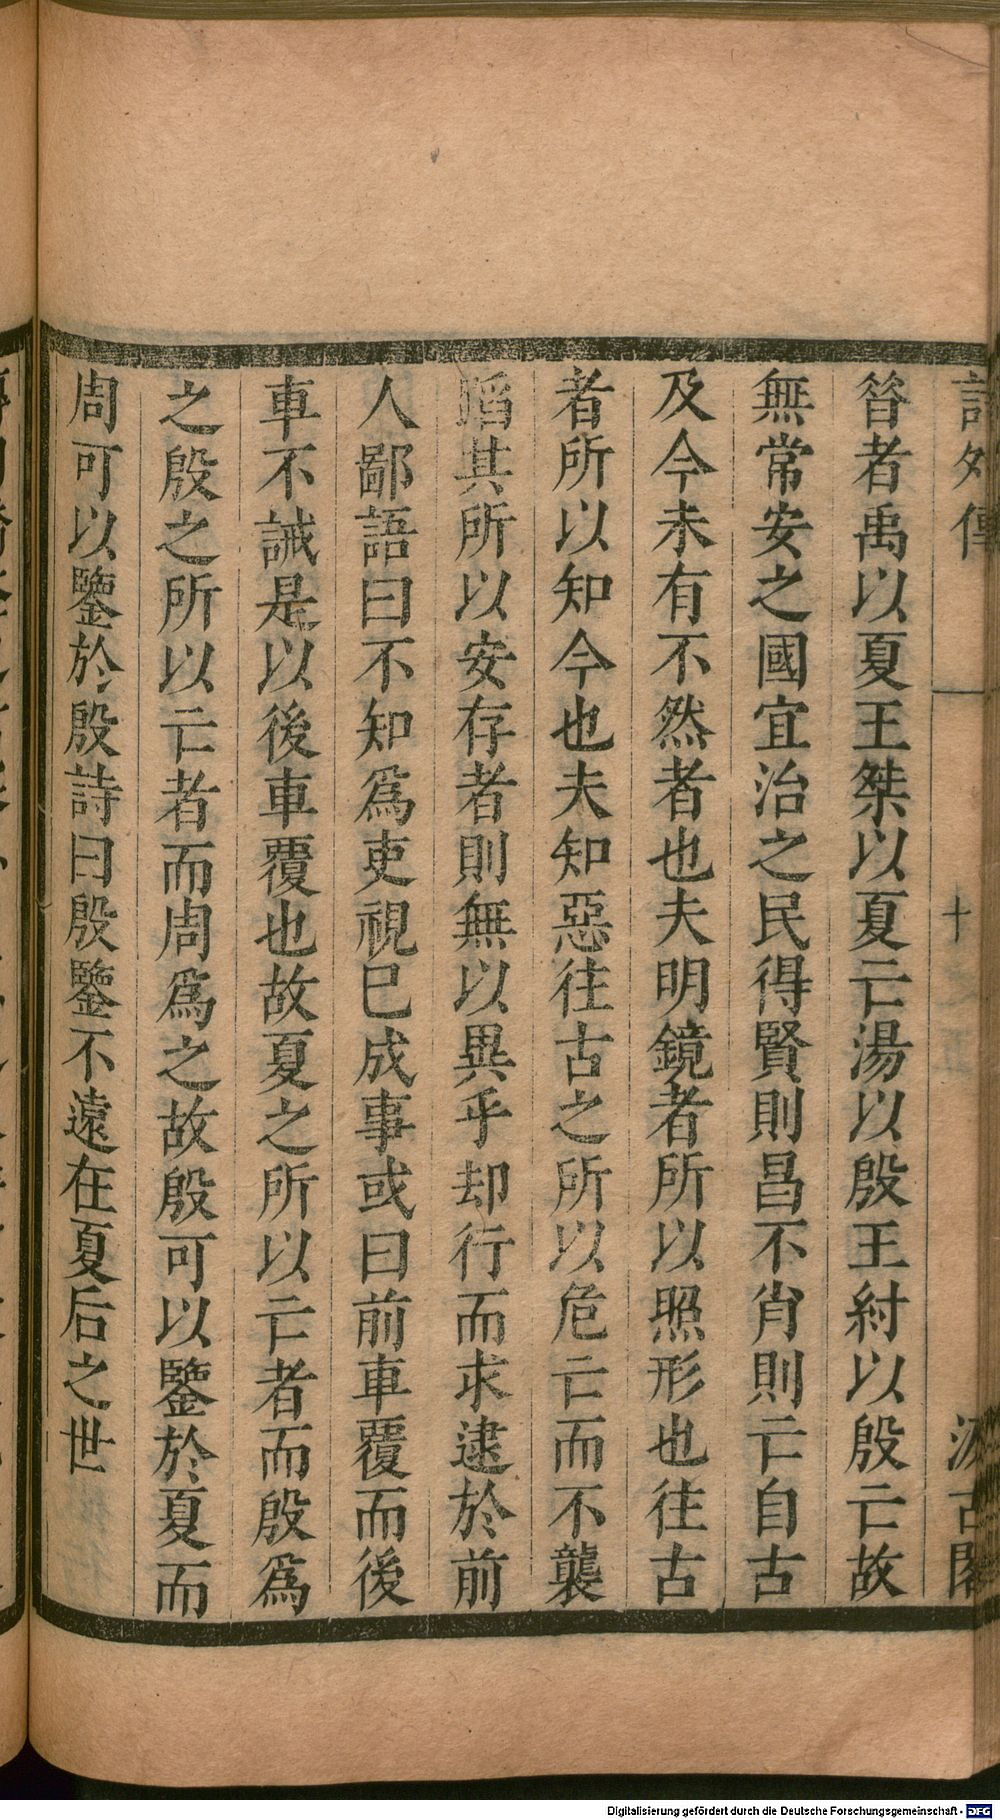 詩外傳 十 汲古閣
昝者禹以夏王桀以夏亡湯以殷王紂以殷亡故
無常安之國宜治之民得賢則昌不肖則亡自古
及今未有不然者也夫明鏡者所以照形也往古
者所以知今也夫知惡往古之所以危亡而不襲
蹈其所以安存者則無以異乎却行而求逮於前
人鄙語曰不知爲吏視已成事或曰前車覆而後
車不誡是以後車覆也故夏之所以亡者而殷爲
之殷之所以亡者而周爲之故殷可以鑒於夏而
周可以鑒於殷詩曰殷鑒不遠在夏后之世
Digitalisierung gefördert durch die Deutsche Forschungsgemeinschaft - DFG